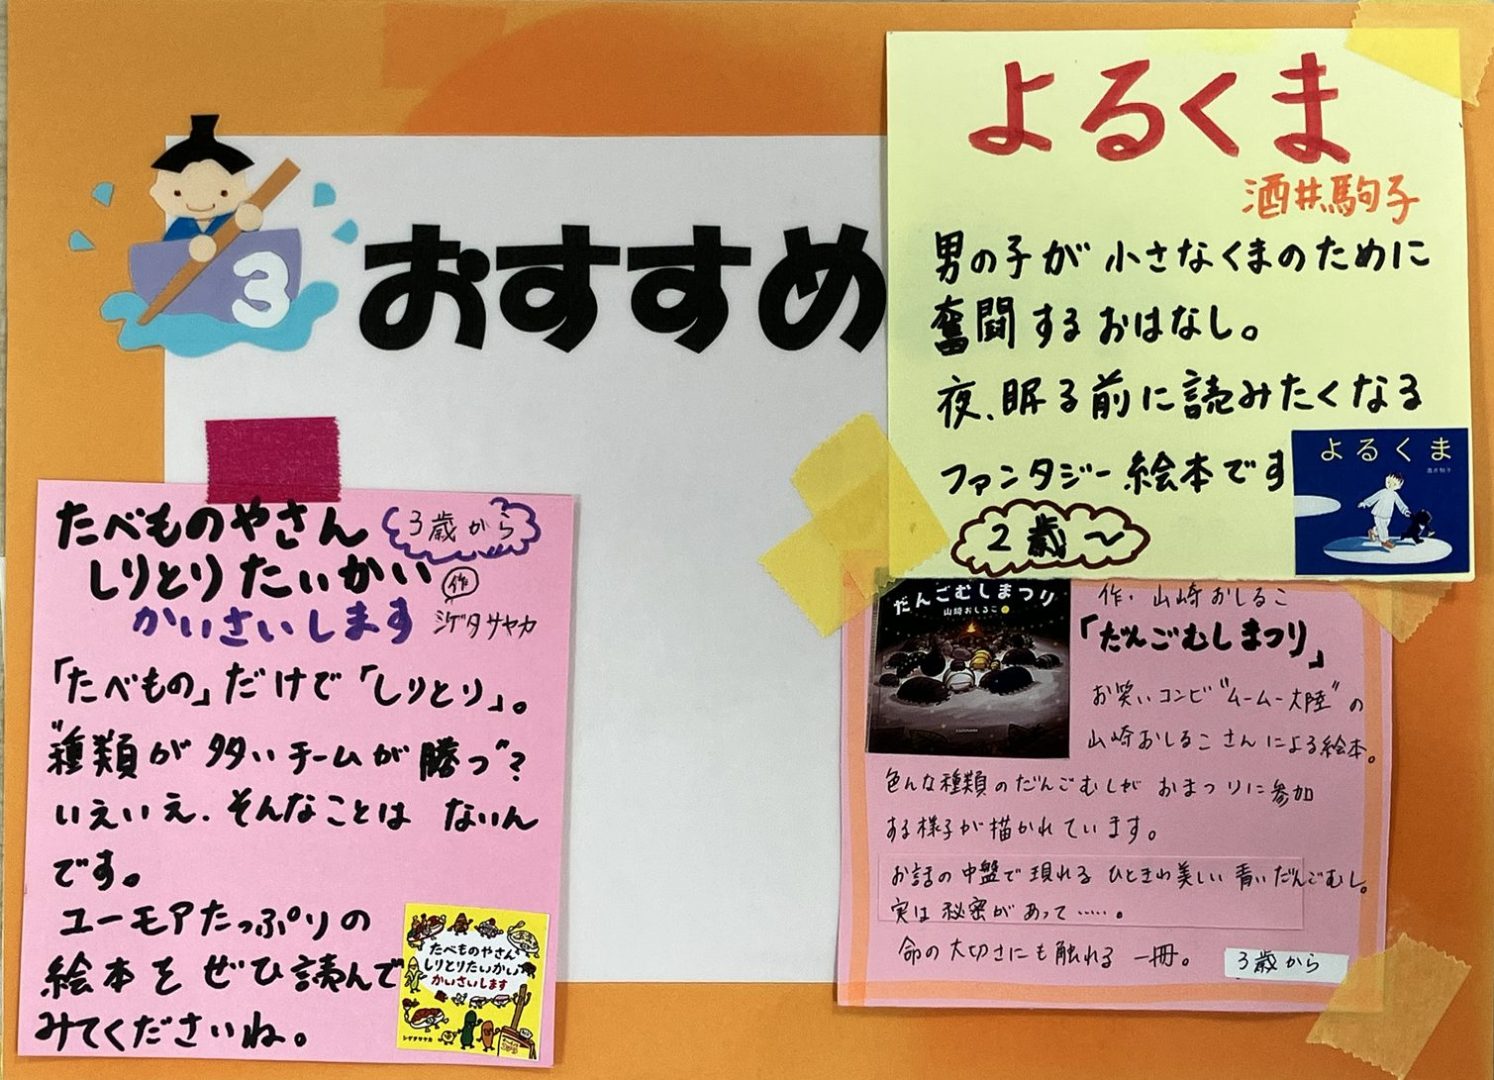 3
おすすめ
よるくま
酒井駒子
男の子が小さなくまのために
奮闘するおはなし。
夜、眠る前に読みたくなる
ファンタジー絵本です
2歳〜
よるくま
酒井駒子
たべものやさん
しりとりたいかい
かいさいします
3歳から
作
シゲタサヤカ
「たべもの」だけで「しりとり」。
"種類が多いチームが勝つ"?
いえいえ、そんなことは ないん
です。
ユーモアたっぷりの
絵本をぜひ読んで
みてくださいね。
たべものやさん
しりとりたいかい
かいさいします
シゲタサヤカ
だんごむしまつり
山崎おしるこ
作・山崎おしるこ
「だんごむしまつり」
お笑いコンビ"ムームー大陸"の
山崎おしるこさんによる絵本。
色んな種類のだんごむしが おまつりに参加
する様子が描かれています。
お話の中盤で現れる ひときわ美しい 青いだんごむし。
実は秘密があって……。
命の大切さにも触れる 一冊。
3歳から